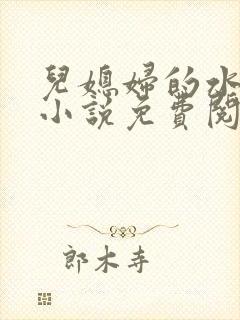 兒媳婦的水
小說免費閱
郎木寺